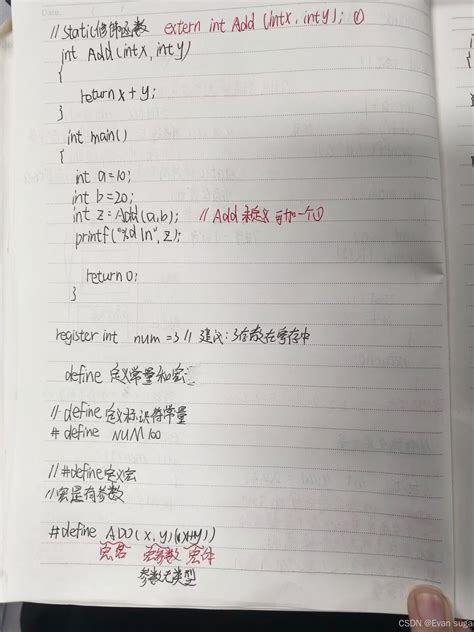 // Static修饰函数 extern int Add (int x, int y); ①
int Add(int x, int y)
{
return x + y;
}
int main()
{
int a=10;
int b=20;
int z=Add(a,b); // Add 未定义 可加一个①
printf("%d\n", z);
return 0;
}
register int num =3 // 建议:3存放在寄存中
define 定义常量和宏
// define定义标识符常量
# define NUM 100
// #define定义宏
// 宏是有参数
#define ADD(x, y)((x)+(y))
宏名 宏参数 宏体
参数无类型
CSDN @Evan suga